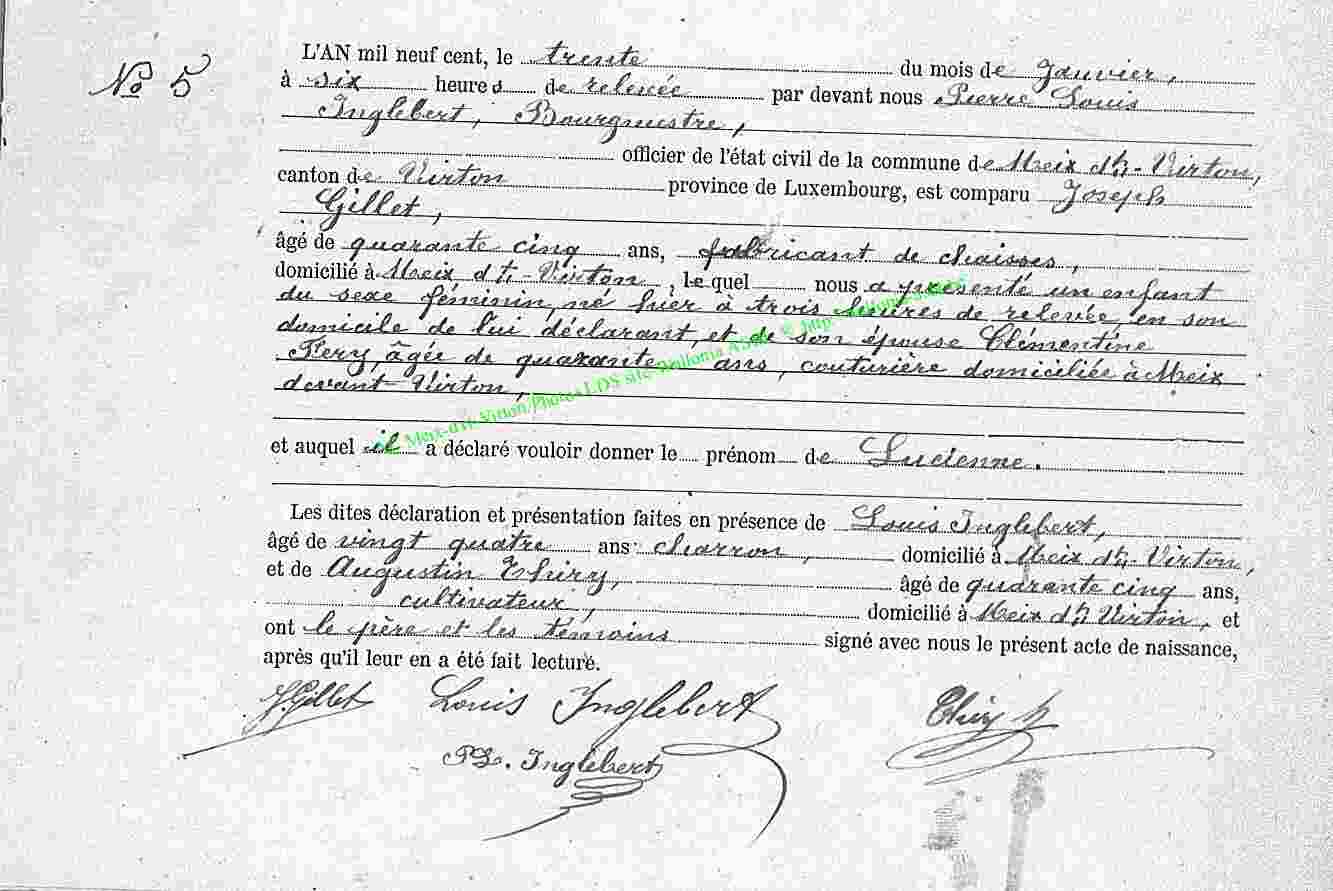 No 5
L'AN mil neuf cent, le trente du mois de Janvier,
à six heures de relevée par devant nous Pierre Louis
Inglebert, Bourgmestre,
officier de l'état civil de la commune de Meix dt. Virton,
canton de Virton province de Luxembourg, est comparu Joseph
Gillet,
âgé de quarante cinq ans, fabricant de chaises,
domicilié à Meix dt. Virton, lequel nous a présenté un enfant
du sexe féminin, né hier à trois heures de relevée, en son
domicile de lui déclarant, et de son épouse Clémentine
Fery, âgée de quarante ans, couturière domiciliée à Meix
devant Virton,
Meix-dt-Virton/Photos LDS site Wallonia ASBL © http:
et auquel il a déclaré vouloir donner le prénom de Lucienne.
Les dites déclaration et présentation faites en présence de Louis Inglebert,
âgé de vingt quatre ans charron, domicilié à Meix dt. Virton,
et de Augustin Thiry, âgé de quarante cinq ans,
cultivateur, domicilié à Meix dt Virton, et
ont le père et les témoins signé avec nous le présent acte de naissance,
après qu'il leur en a été fait lecture.
J. Gillet Louis Inglebert Thiry
PL. Inglebert